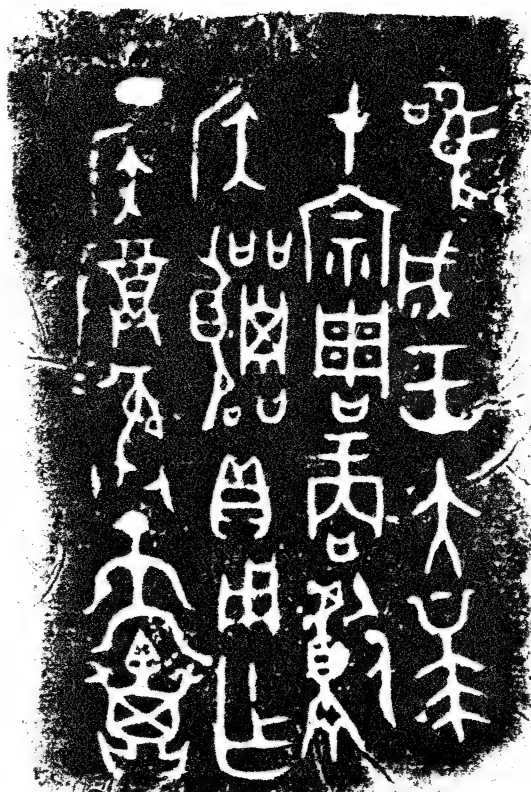 唯成王大𠦪
才宗周商獻
侯囂貝用乍
丁侯尊彝天黽